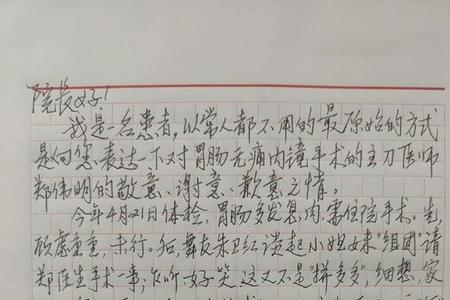 院长好!
我是一名患者,以常人都不用的最原始的方式
是向您表达一下对胃肠无痛内镜手术的主刀医师
郑伟明的敬意、谢意、歉意之情。
今年4月21日体检,胃肠多发息肉,需住院手术。先
顾虑重重,未行。后,舞友朱卫红谈起小姐妹"组团"请
郑医生手术一事,乍听:好笑,这又不是"拼多多",细想,家